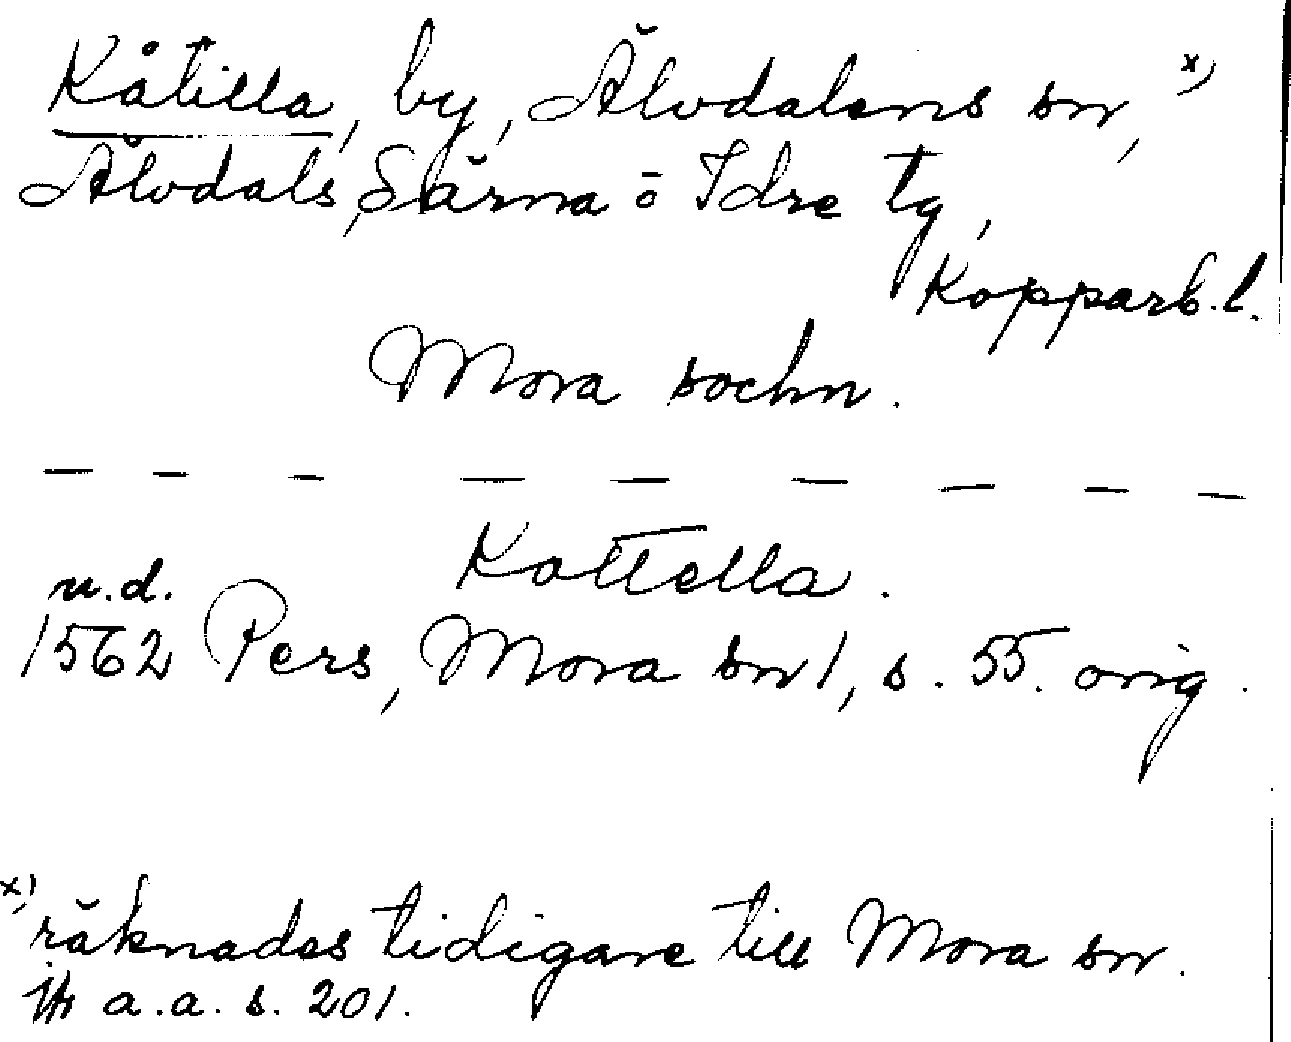 Kåtilla, by, Älvdalens sn, x)
Älvdals, Särna o Idre tg,
Kopparb. l.
Mora sochn.
— — — — — — — — —
Kattella.
u.d.
1562 Pers, Mora sn 1, s. 55. orig.
x) räknades tidigare till Mora sn.
jfr a.a. s. 201.